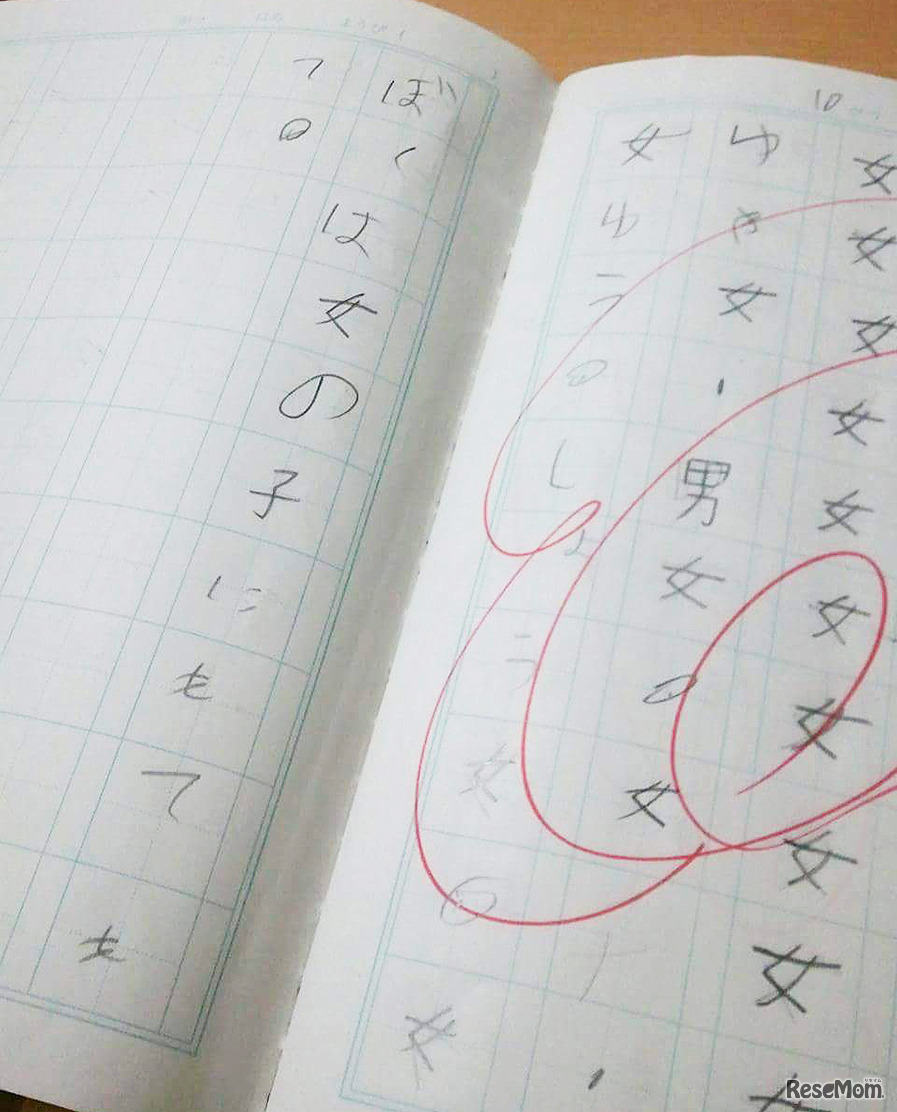 10
女女女女女女女女女女
ゆき女・男女の女
女ゆうのしょう女の女
ぼくは女の子にもても
ての
ReseMom
リセマム